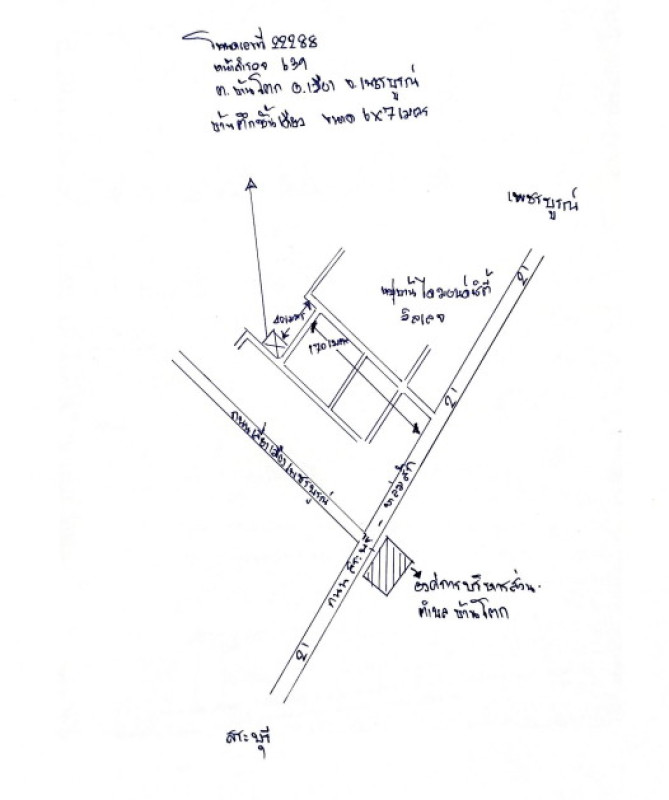 โฉนดเลขที่ 22288
หน้าสำรวจ 639
ต. บ้านโตก อ.เมือง จ.เพชรบูรณ์
บ้านตึกชั้นเดียว ขนาด 6x7 เมตร
เพชรบูรณ์
หมู่บ้านไดมอนด์ซิตี้
วิลเลจ
40 เมตร
170 เมตร
21
21
ถนนเลี่ยงเมืองเพชรบูรณ์
ถนน สระบุรี - หล่มสัก
องค์การบริหารส่วน
ตำบลบ้านโตก
21
สระบุรี